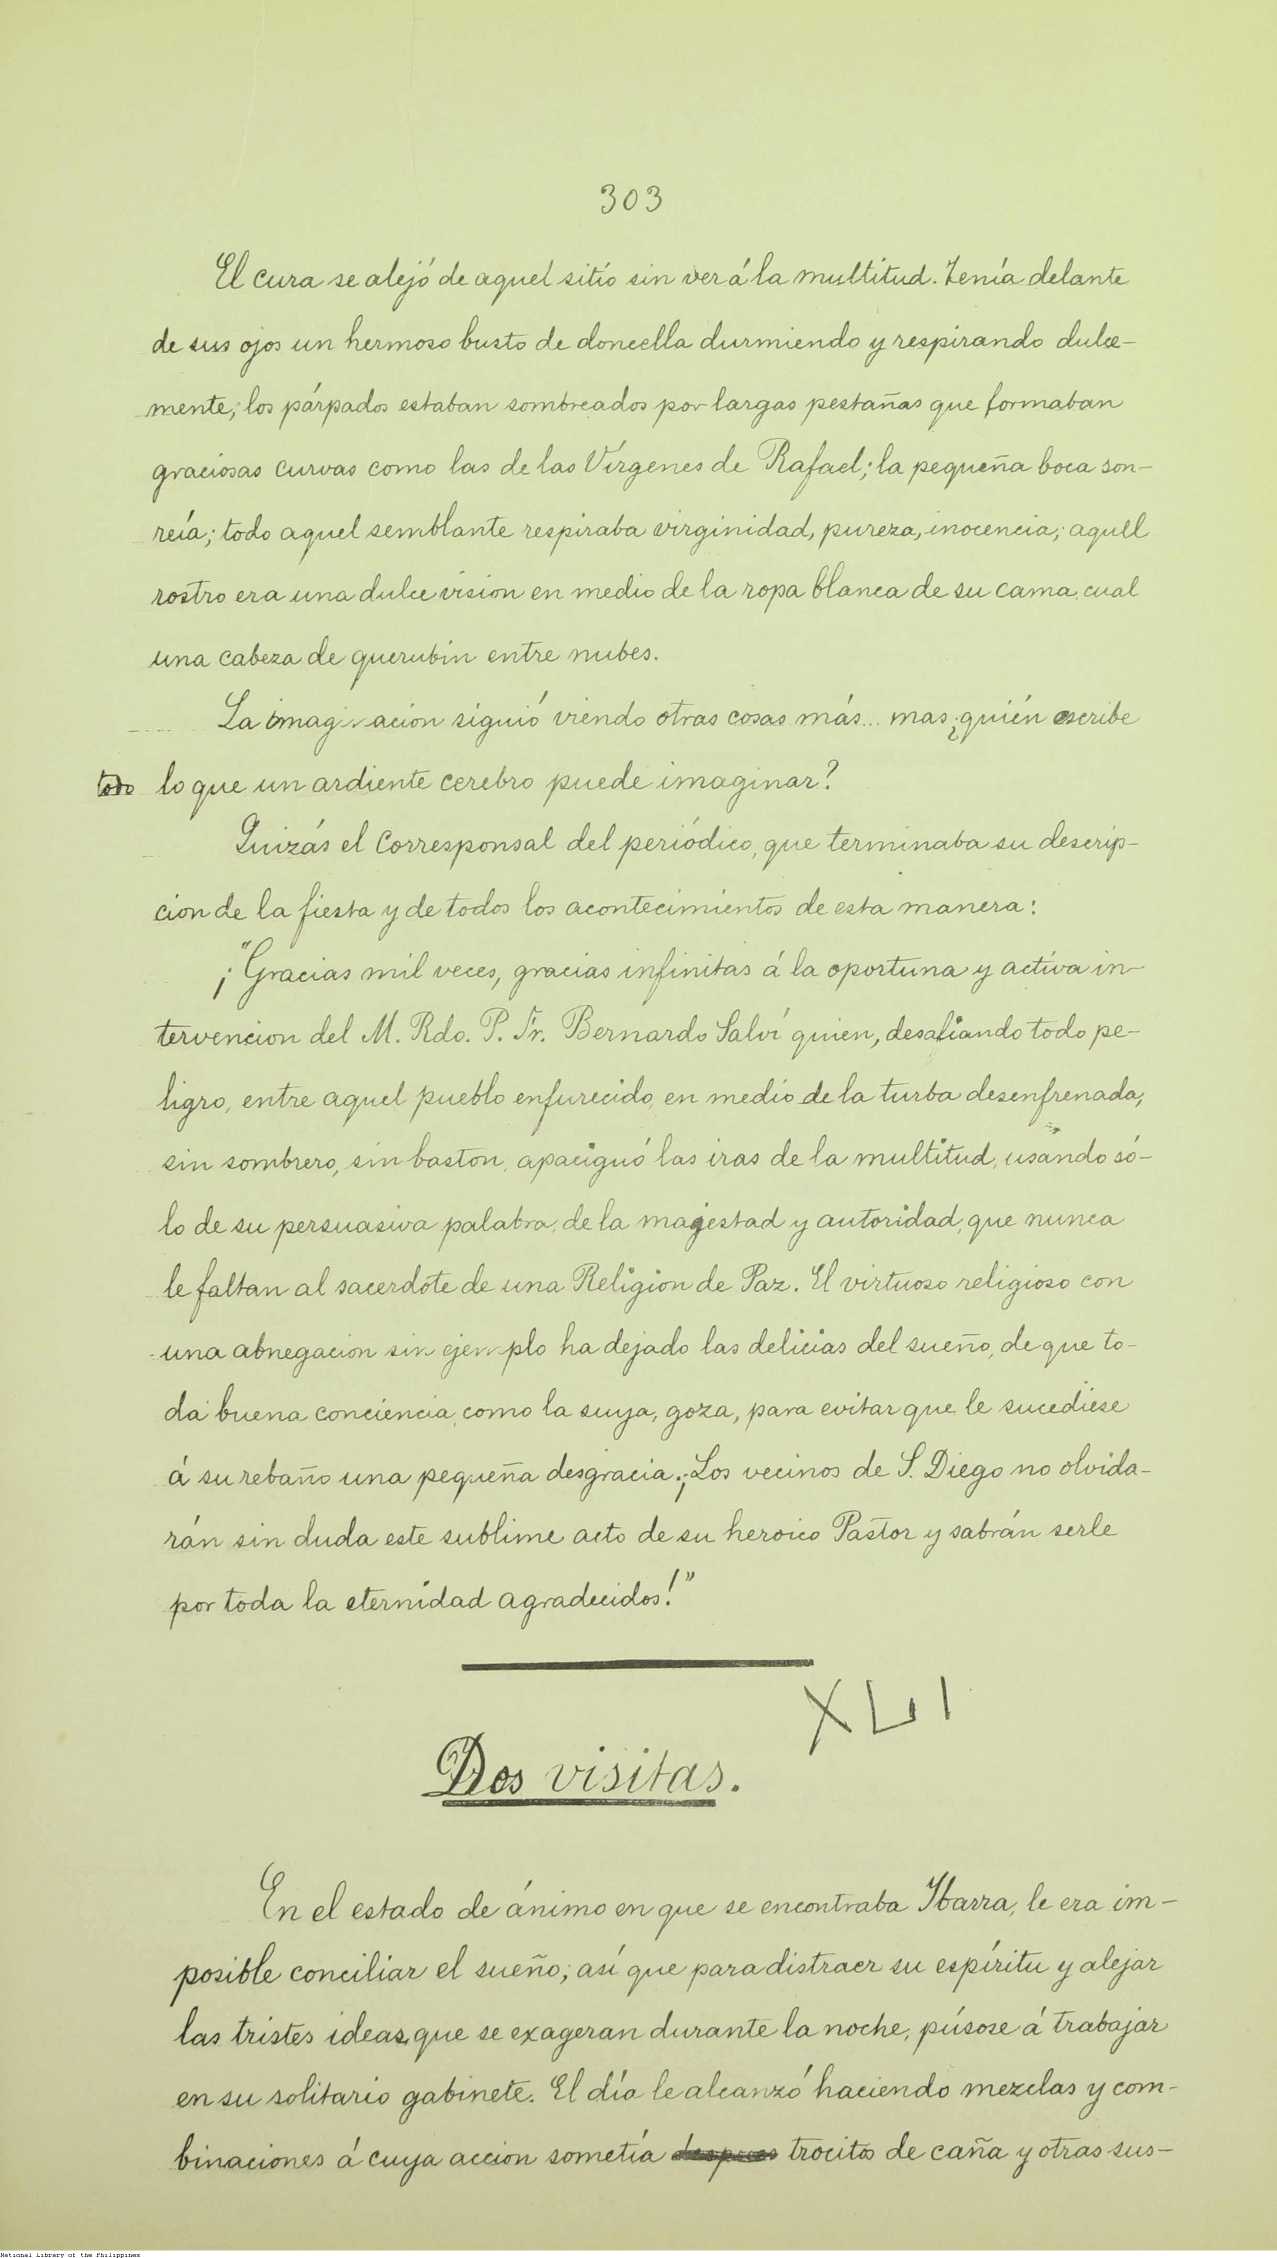 303
El cura se alejó de aquel sitio sin ver á la multitud. Tenía delante
de sus ojos un hermoso busto de doncella durmiendo y respirando dulce-
mente; los párpados estaban sombreados por largas pestañas que formaban
graciosas curvas como las de las Vírgenes de Rafael; la pequeña boca son-
reía; todo aquel semblante respiraba virginidad, pureza, inocencia; aquel
rostro era una dulce vision en medio de la ropa blanca de su cama, cual
una cabeza de querubin entre nubes.
La imaginacion siguió viendo otras cosas más... mas ¿quién escribe
todo lo que un ardiente cerebro puede imaginar?
Quizás el Corresponsal del periódico, que terminaba su descrip-
cion de la fiesta y de todos los acontecimientos de esta manera:
¡"Gracias mil veces, gracias infinitas á la oportuna y activa in-
tervencion del M. Rdo. P. Fr. Bernardo Salví quien, desafiando todo pe-
ligro, entre aquel pueblo enfurecido, en medio de la turba desenfrenada,
sin sombrero, sin baston, apaciguó las iras de la multitud, usando só-
lo de su persuasiva palabra, de la majestad y autoridad, que nunca
le faltan al sacerdote de una Religion de Paz. El virtuoso religioso con
una abnegacion sin ejemplo ha dejado las delicias del sueño, de que to-
da buena conciencia, como la suya, goza, para evitar que le sucediese
á su rebaño una pequeña desgracia. ¡Los vecinos de S. Diego no olvida-
rán sin duda este sublime acto de su heroico Pastor y sabrán serle
por toda la eternidad agradecidos!"
XLI
Dos visitas.
En el estado de ánimo en que se encontraba Ibarra, le era im-
posible conciliar el sueño; así que para distraer su espíritu y alejar
las tristes ideas, que se exageran durante la noche, púsose á trabajar
en su solitario gabinete. El día le alcanzó haciendo mezclas y com-
binaciones á cuya accion sometía despues trocitos de caña y otras sus-
National Library of the Philippines